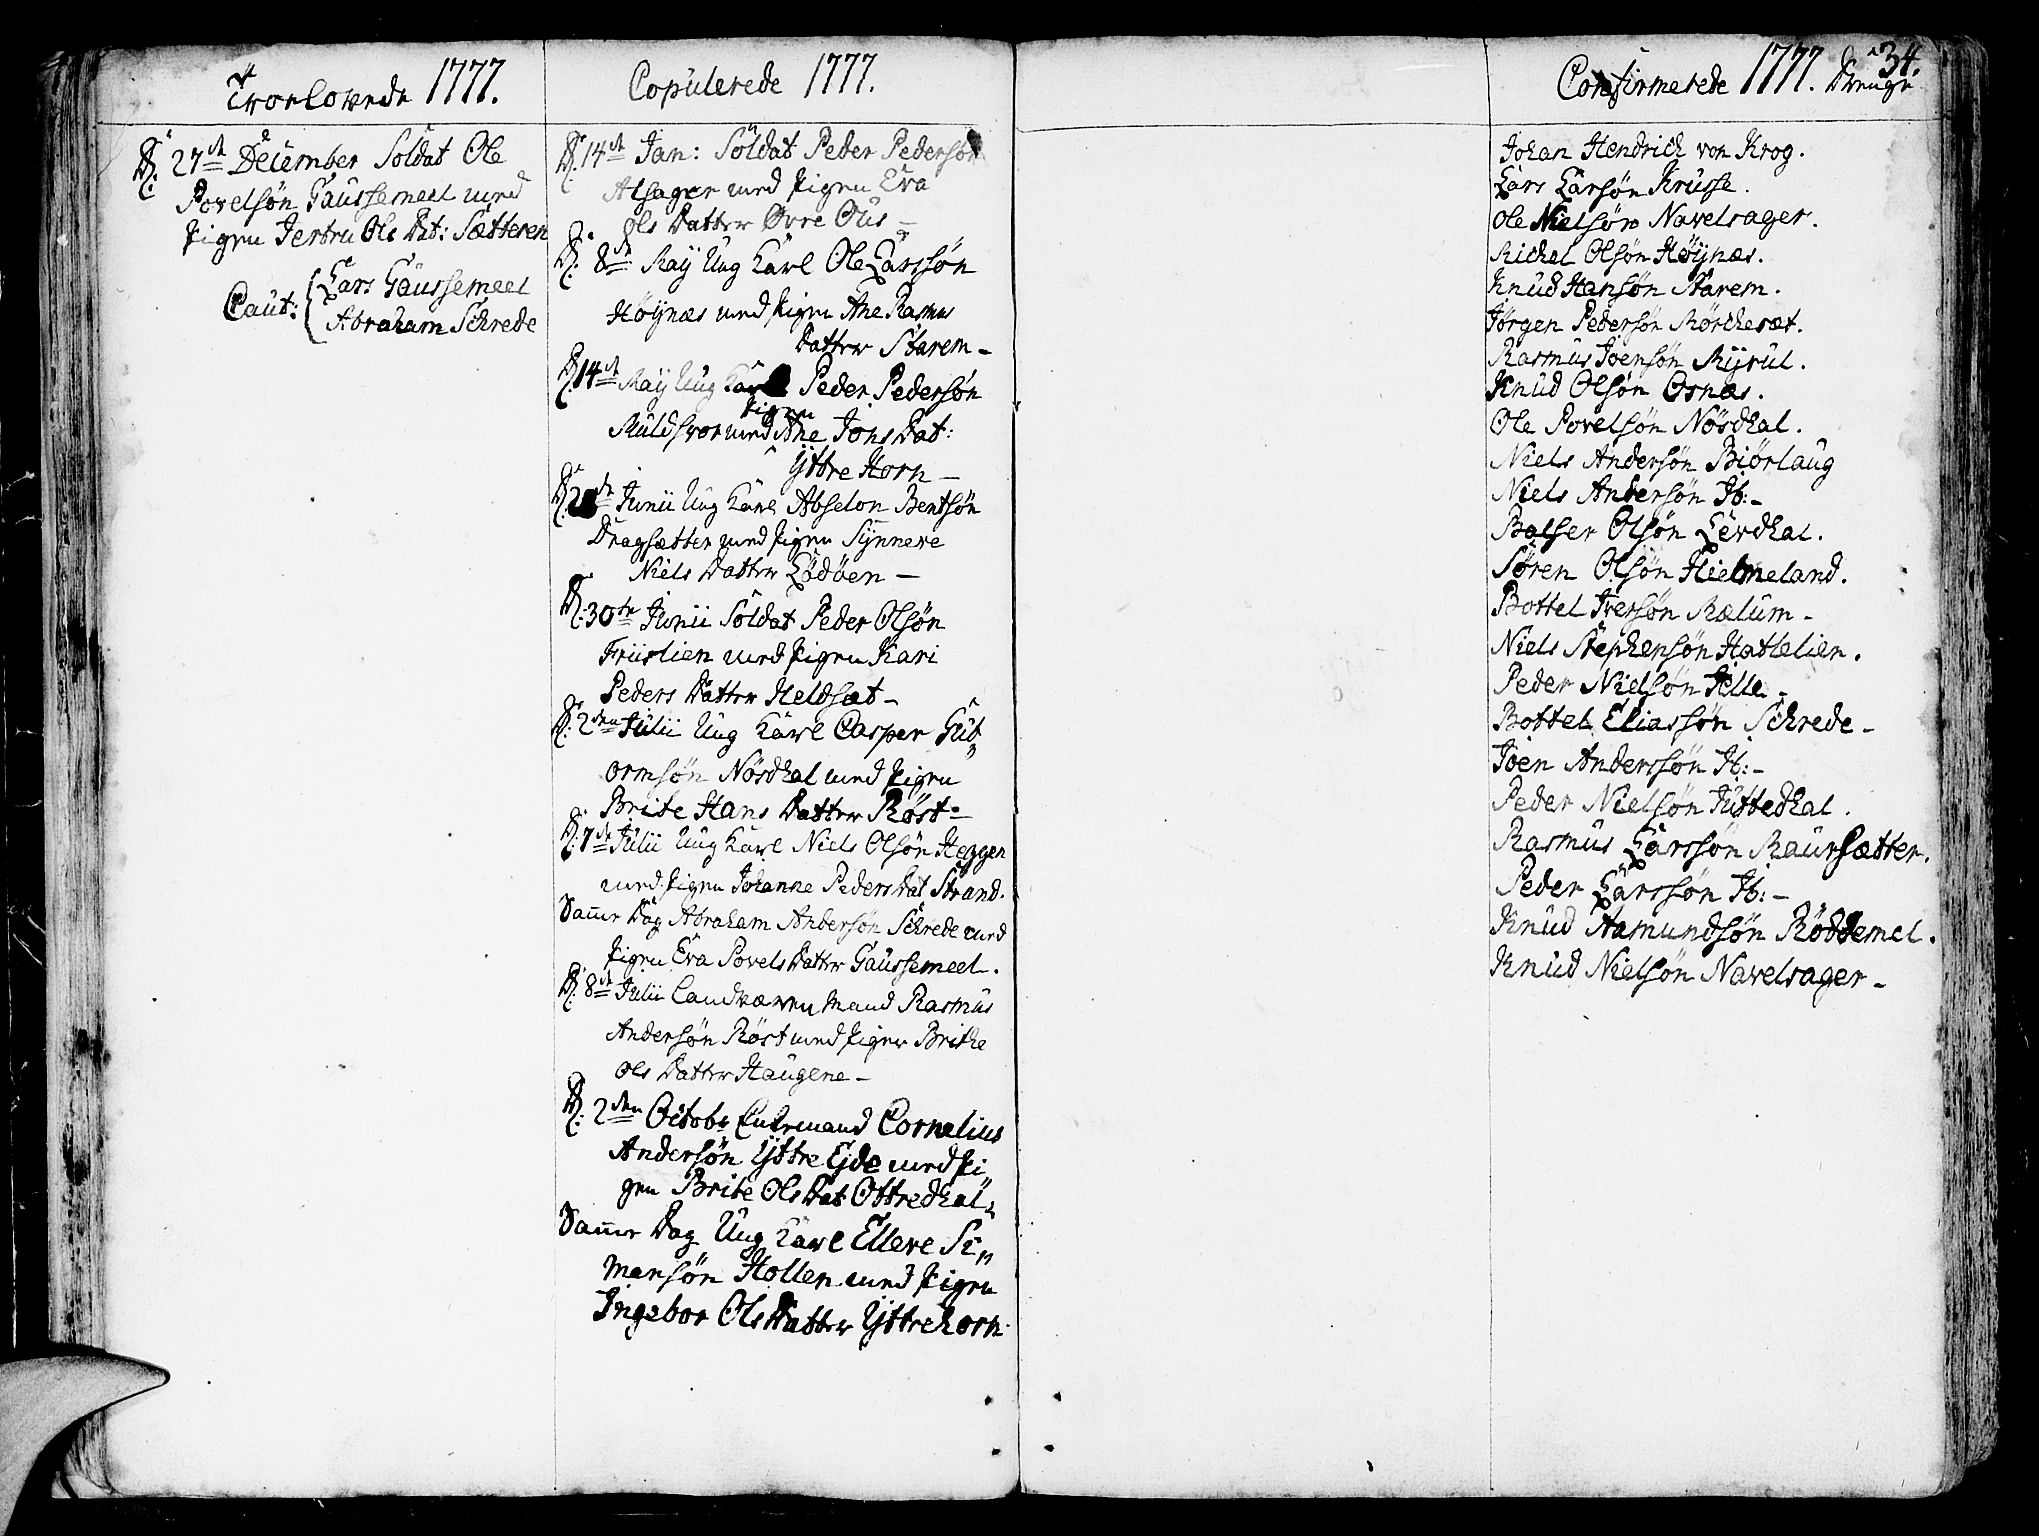 Trorlovede 1777.
D: 27de December Soldat Ole
Povelsön Gaussemeel med
Pigen Jertru Ols Dat: Sætteren
Caut: Lars Gaussemeel
Abraham Schrede
Copulerede 1777.
D: 14de Jan: Soldat Peder Pedersön
Alsager med Pigen Eva
Ols Datter Øvre Ous -
D: 8de May Ung Karl Ole Larssön
Höÿnæs med Pigen Ane Rasmus
Datter Starem -
D: 14de May Ung Karl Peder Pedersön
Pigen
Muldsvor med Ane Jons Dat:
Ÿttre Horn -
Junii Ung Karl Abselon Bentsön
Dragsætter med Pigen Sÿnneve
Niels Datter Lödöen -
D: 30te Junii Soldat Peder Olsön
Friislien med Pigen Kari
Peders Datter Heldsæt -
D: 2den Julii Ung Karl Casper Gut,,
ormsön Nösdhal med Pigen
Brite Hans Datter Röst -
D: 7de Julii Ung Karl Niels Olsön Heggen
med Pigen Johanne Peders Dat Strand.
Same Dag Abraham Andersön Schrede med
Pigen Eva Povels Datter Gaussemeel.
D: 8de Julii Landværen Mand Rasmus
Andersön Röst med Pigen Brithe
Ols Datter Haugene -
D: 2den Octobr Enkemand Cornelius
Andersön Ÿttre Ejde med Pi
gen Brite Ols Dat Ottredhal,,
Same Dag Ung Karl Ellere Si,,
mensön Hollen med Pigen
Ingebor Ols Datter Ÿttrehorn.
34.
Confirmerede 1777. Drenge
Johan Hendrich von Krog.
Lars Larsön Krusse.
Ole Nielsön Navelsager.
Michel Olsön Höÿnæs.
Knud Hansön Starem.
Jörgen Pedersön Mörchesæt.
Rasmus Joensön Mÿrul.
Knud Olsön Osnæs.
Ole Povelsön Nösdhal.
Niels Andersön Biörlaug
Niels Andersön Ib: -
Balser Olsön Lérdhal.
Sören Olsön Hielmeland.
Bottel Iversön Mælum -
Niels Stephensön Hatlelien.
Peder Nielsön Tille -
Bottel Eliassön Schrede -
Joen Anderssön Ib: -
Peder Nielsön Juttedhal.
Rasmus Larssön Raursætter.
Peder Larssön Ib: -
Knud Aamundsön Röddemel.
Knud Nielsön Navelsager -